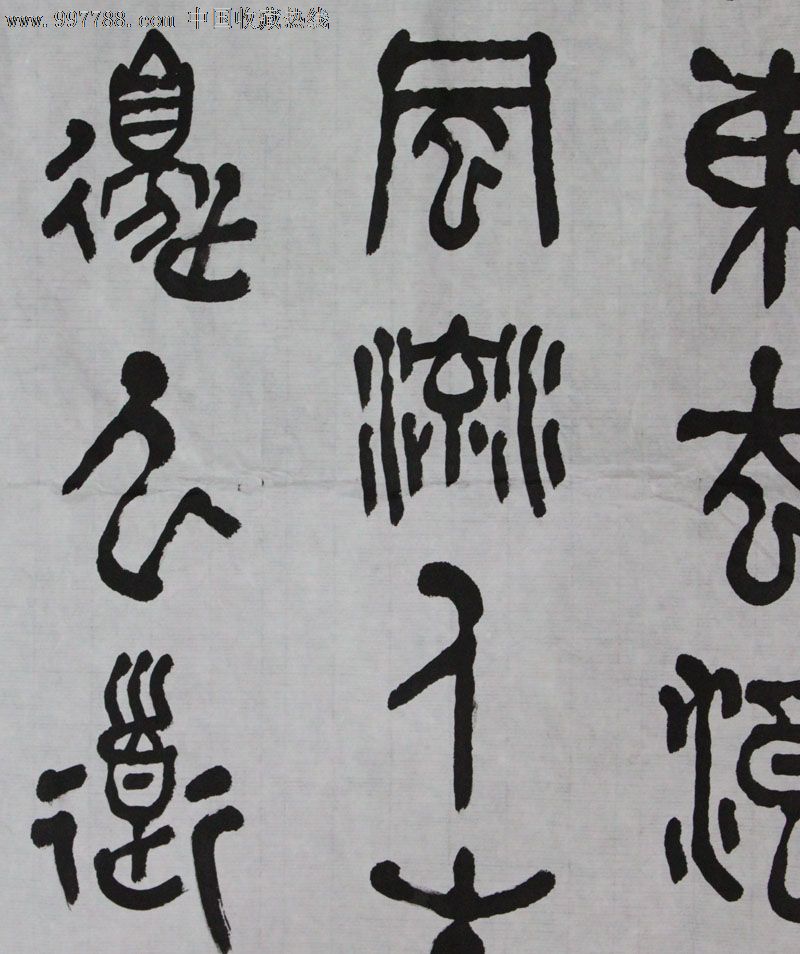 www.997788.com 中国收藏热线
東去浪
風流人
邊人道